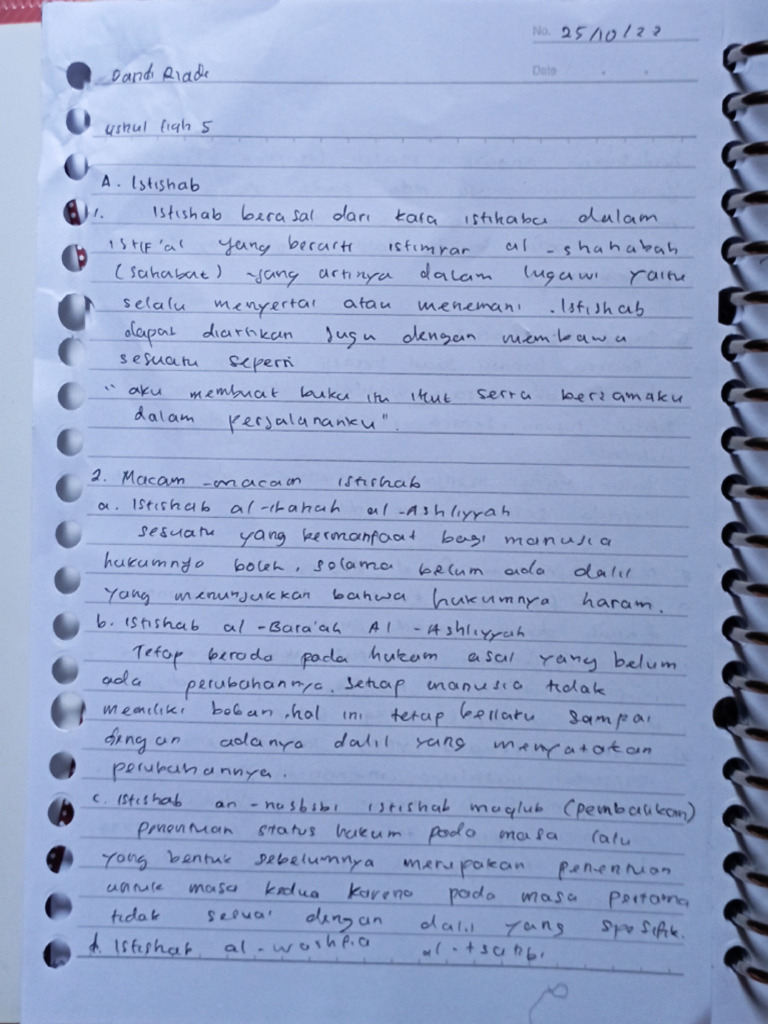 No. 25/10/22
Date
Dandi Riade
Ushul Fiqh 5
A. Istishab
1. Istishab berasal dari kata istihaba dalam
ISTIF'al yang berarti istimrar al-shahabah
(sahabat) yang artinya dalam lugawi yaitu
selalu menyertai atau menemani. Istishab
dapat diartikan juga dengan membawa
sesuatu seperti
"aku membuat buku itu ikut serta bersamaku
dalam perjalananku".
2. Macam-macam istishab
a. Istishab al-ibahah al-Ashliyyah
sesuatu yang bermanfaat bagi manusia
hukumnya boleh, selama belum ada dalil
yang menunjukkan bahwa hukumnya haram.
b. Istishab al-Bara'ah Al-Ashliyyah
Tetap berada pada hukum asal yang belum
ada perubahannya. Setiap manusia tidak
memiliki beban, hal ini tetap berlaku sampai
dengan adanya dalil yang menyatakan
perubahannya.
c. Istishab an-nasbibi istishab maqlub (pembalikan)
penentuan status hukum pada masa lalu
yang bentuk sebelumnya merupakan penentuan
untuk masa kedua karena pada masa pertama
tidak sesuai dengan dalil yang spesifik.
d. Istishab al-washfia al-tsanbi